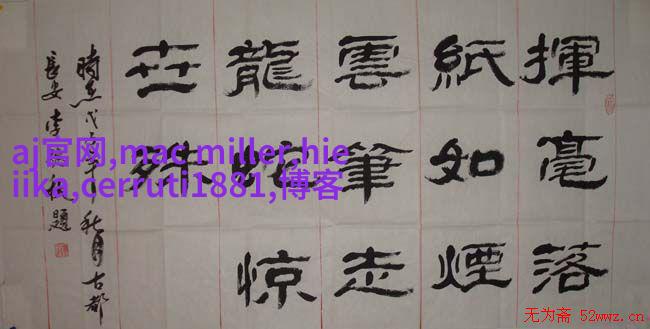 揮毫落
紙如煙
雲筆走
龍蛇惊
世殊
時在戊 秋月古都
長安李 題
aj官网,mac miller,hie
iika,cerruti1881,博客
无为斋 52wwz.cn